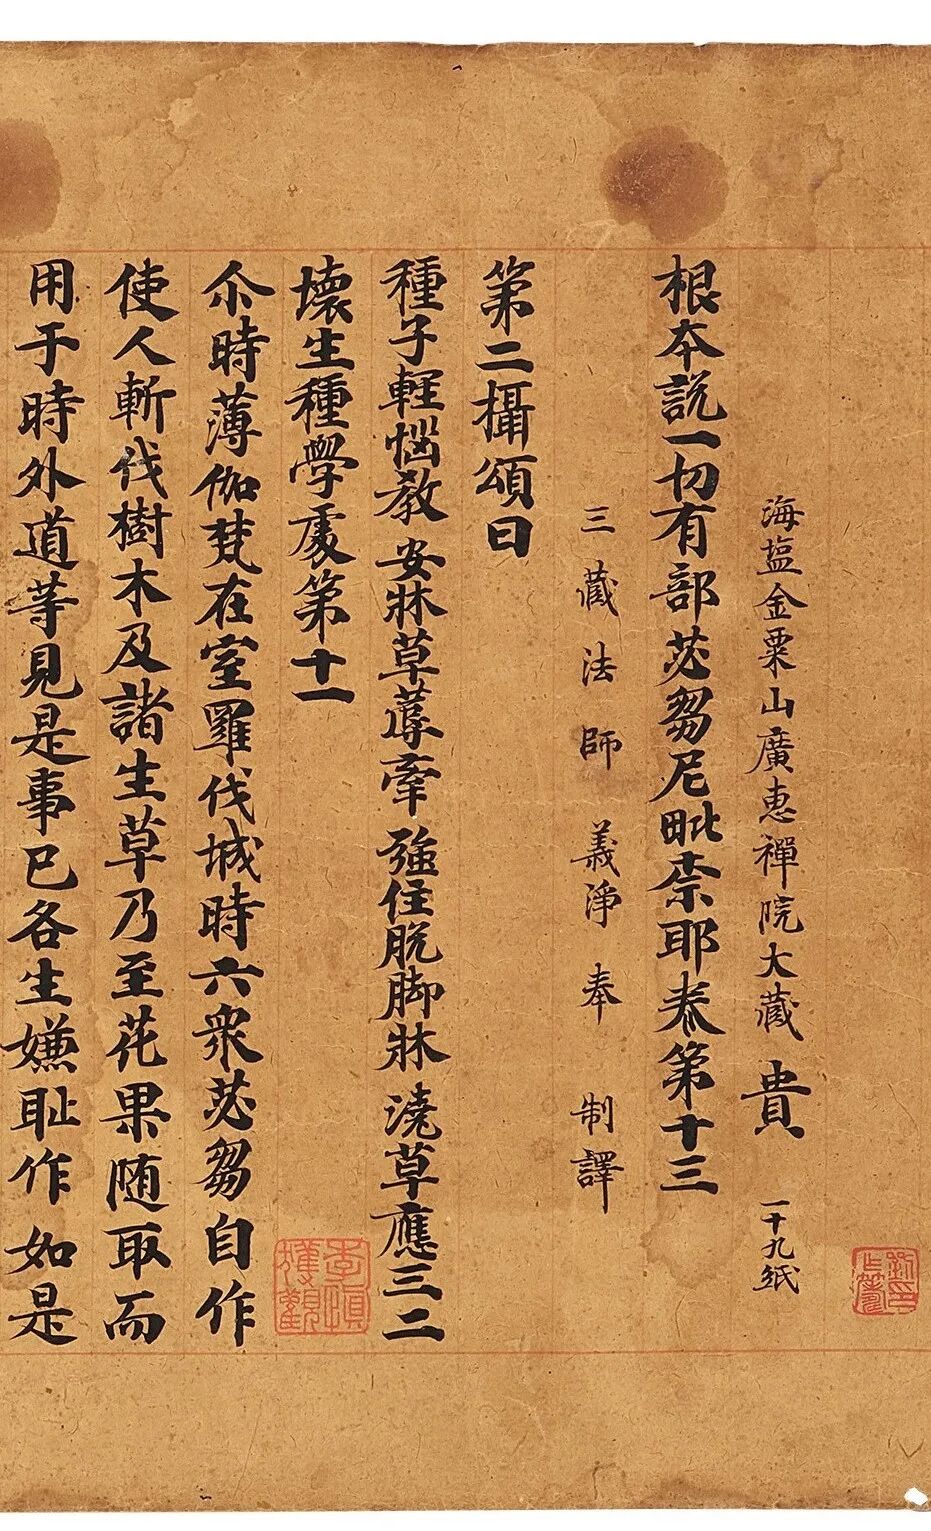 海塩金粟山廣恵禪院大藏 貴 一十九紙
根本説一切有部苾芻尼毗柰耶卷第十三
三藏法師 義淨 奉 制譯
第二攝頌曰
種子輕惱教 安牀草蓐牽 強住脫脚牀 澆草應三二
壞生種學處第十一
尒時薄伽梵在室羅伐城時六衆苾芻自作
使人斬伐樹木及諸生草乃至花果随取而
用于時外道等見是事已各生嫌耻作如是